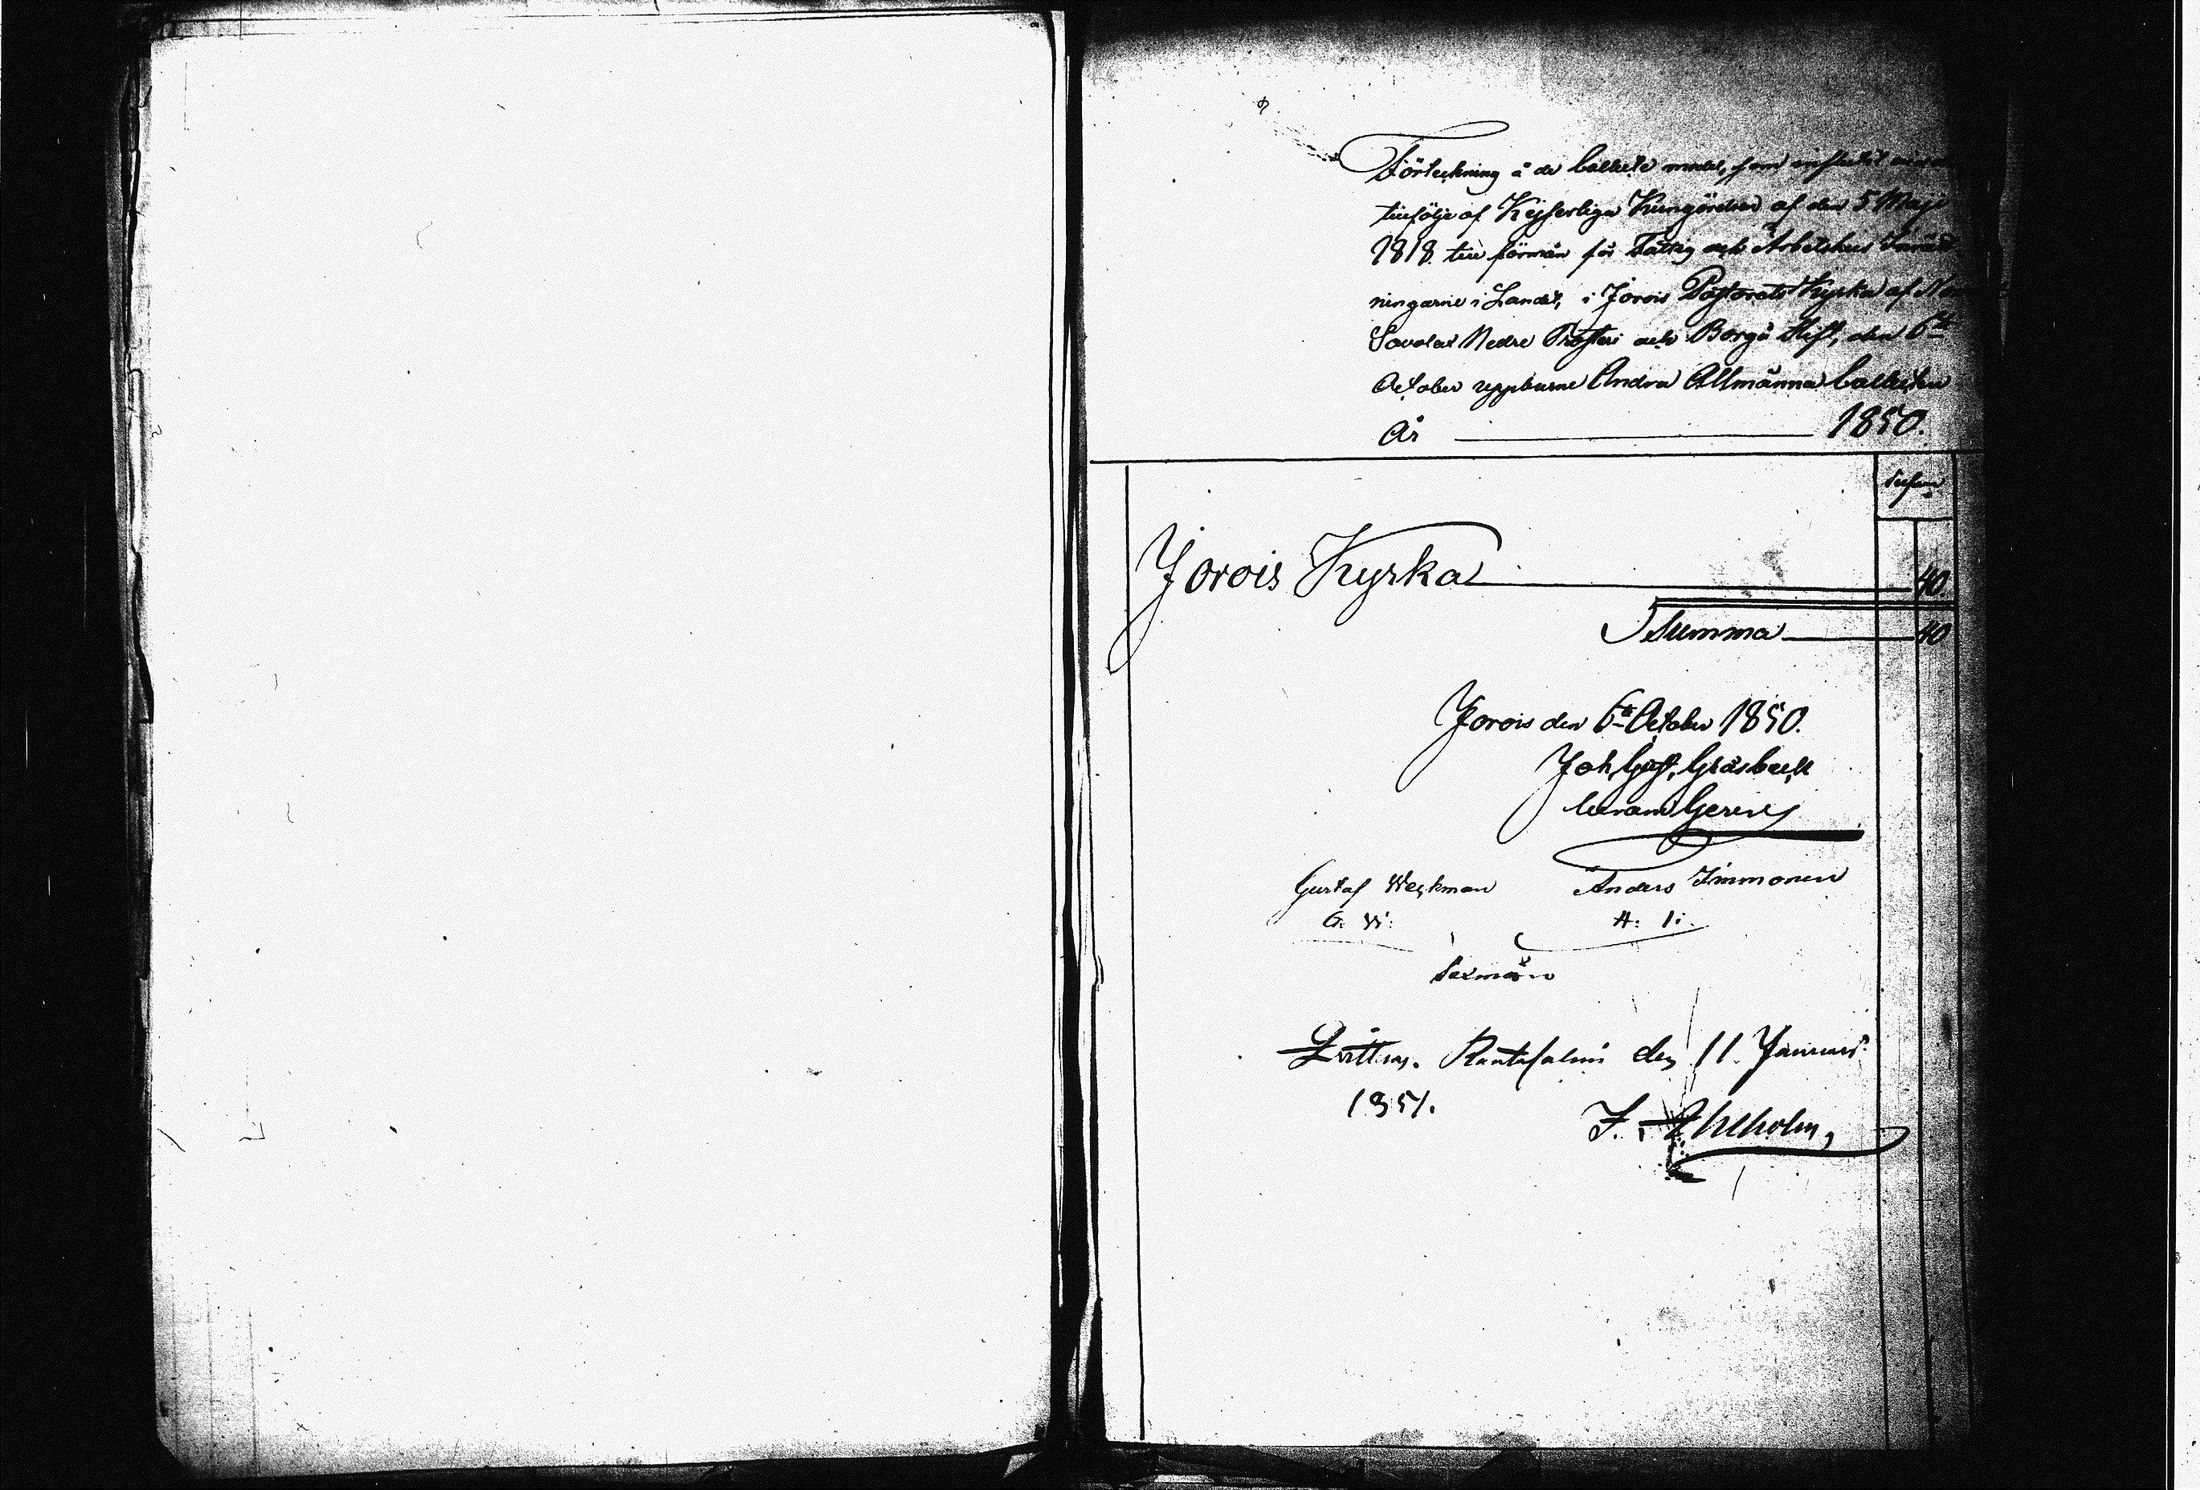 Förteckning å de Collecte medel, som influtit
tillfölje af Kejserliga Kungörelsen af den 5 Maji
1818. till förmån för Fattig och Arbetshus Inrätt
ningarne i Landet, i Jorois Pastorats Kyrka af
Savolax Nedre Prosteri och Borgå Stift, den 6te
October uppburne Andra Allmänna Collecten
År 1850.
Silfver
Jorois Kyrka 40
Summa 40
Jorois den 6te October 1850.
Joh Gust. Gråsbeck
Gustaf Weckman Anders Immonen
G: W: A: I:
Sexmän
Rantasalmi den 11. Januari
1851.